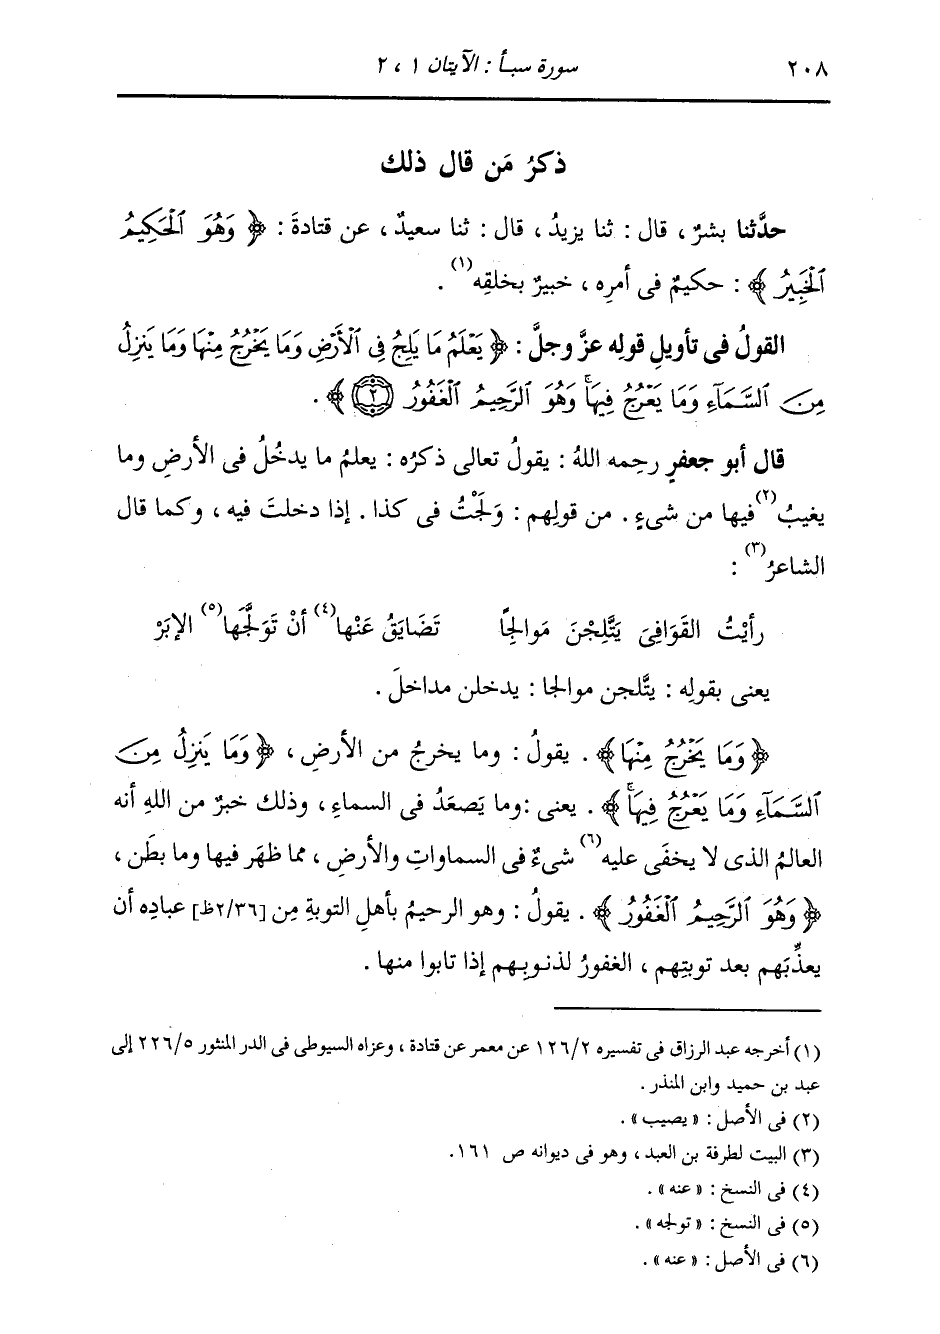 ٢٠٨ سورة سبأ : الآيتان ١ ، ٢
ذكرُ مَن قال ذلك
حدَّثنا بشرٌ ، قال : ثنا يزيدُ ، قال : ثنا سعيدٌ ، عن قتادةَ : ﴿ وَهُوَ ٱلْحَكِيمُ
ٱلْخَبِيرُ ﴾ : حكيمٌ فى أمرِه ، خبيرٌ بخلقِه(١) .
القولُ فى تأويلِ قولِه عزَّ وجلَّ : ﴿ يَعْلَمُ مَا يَلِجُ فِى ٱلْأَرْضِ وَمَا يَخْرُجُ مِنْهَا وَمَا يَنزِلُ
مِنَ ٱلسَّمَآءِ وَمَا يَعْرُجُ فِيهَاۚ وَهُوَ ٱلرَّحِيمُ ٱلْغَفُورُ ٢ ﴾ .
قال أبو جعفرٍ رحِمه اللهُ : يقولُ تعالى ذكرُه : يعلمُ ما يدخُلُ فى الأرضِ وما
يغيبُ(٢) فيها من شىءٍ . من قولِهم : وَلَجْتُ فى كذا . إذا دخلتَ فيه ، وكما قال
الشاعرُ(٣) :
رأيْتُ القَوَافِىَ يَتَّلِجْنَ مَوالِجًا تَضَايَقُ عَنْها(٤) أنْ تَوَلَّجَها(٥) الإبَرْ
يعنى بقولِه : يتَّلجن موالجا : يدخلن مداخلَ .
﴿ وَمَا يَخْرُجُ مِنْهَا ﴾ . يقولُ : وما يخرجُ من الأرضِ ، ﴿ وَمَا يَنزِلُ مِنَ
ٱلسَّمَآءِ وَمَا يَعْرُجُ فِيهَاۚ ﴾ . يعنى : وما يَصعَدُ فى السماءِ ، وذلك خبرٌ من اللهِ أنه
العالمُ الذى لا يخفَى عليه(٦) شىءٌ فى السماواتِ والأرضِ ، مما ظهَر فيها وما بطَن ،
﴿ وَهُوَ ٱلرَّحِيمُ ٱلْغَفُورُ ﴾ . يقولُ : وهو الرحيمُ بأهلِ التوبةِ مِن [٢/٣٦ظ] عبادِه أن
يعذِّبَهم بعد توبتِهم ، الغفورُ لذنوبِهم إذا تابوا منها .
(١) أخرجه عبد الرزاق فى تفسيره ١٢٦/٢ عن معمر عن قتادة ، وعزاه السيوطى فى الدر المنثور ٢٢٦/٥ إلى
عبد بن حميد وابن المنذر .
(٢) فى الأصل : « يصيب » .
(٣) البيت لطرفة بن العبد ، وهو فى ديوانه ص ١٦١ .
(٤) فى النسخ : « عنه » .
(٥) فى النسخ : « تولجه » .
(٦) فى الأصل : « عنه » .